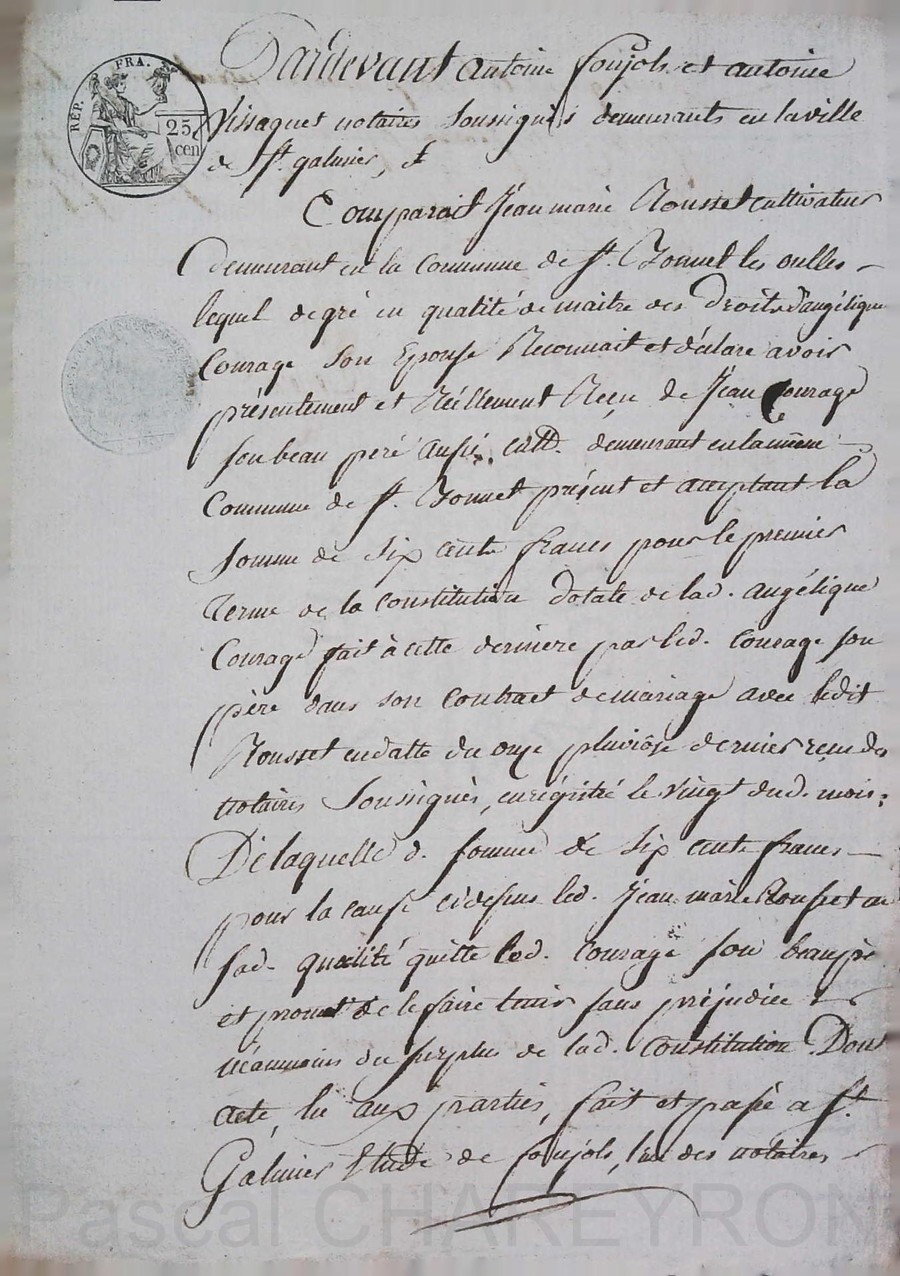 REP. FRA.
25 cen
Pardevant antoine foujols et antoine
Vissaguet notaires soussignés demeurants en la ville
de St. galmier, &
Comparait Jean marie Rousset cultivateur
demeurant en la commune de St. Bonnet les oulles
lequel de gré en qualité de maitre des Droits d'angélique
Courage son Epouse Reconnait et déclare avoir
présentement et Réellement Reçu de Jean Courage
son beau péré aussi cultr. demeurant en la même
Commune de St. Bonnet présent et acceptant la
somme de six cents francs pour le premier
terme de la constitution dotale de lad. angélique
Courage fait à cette derniere par led. Courage son
père dans son Contract de mariage avec ledit
Rousset en datte du onze pluviôse dernier reçu des
notaires soussignés, enrégistré le vingt dud. mois;
De laquelle d. somme de six cents francs
pour la cause cidessus led. Jean marie Rousset en
sad. qualité quitte led. Courage son beaupère
et promet de le faire tenir sans préjudice
néanmoins du surplus de lad. Constitution Dont
acte, lu aux parties, fait et passé a St.
Galmier Etude de foujols, l'un des notaires
Pascal CHAREYRON